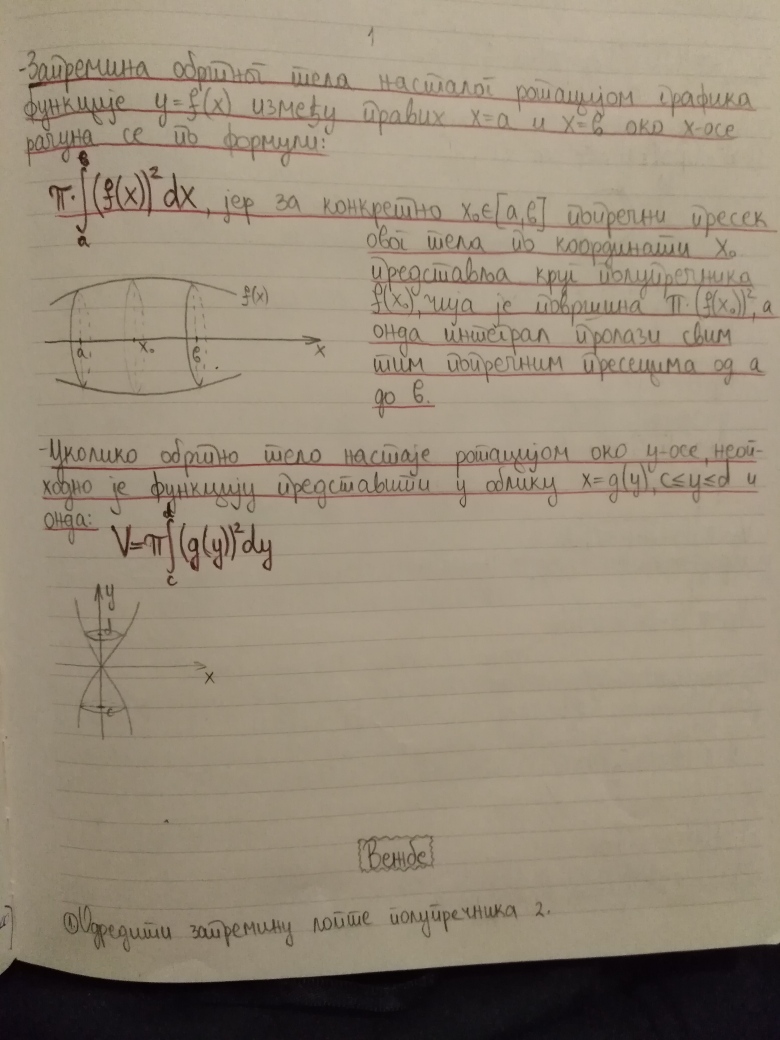 1
-Запремина обртног тела насталог ротацијом графика
функције y=f(x) између правих x=a и x=b око x-осе
рачуна се по формули:
π·∫ₐᵇ(f(x))²dx, јер за конкретно x₀∈[a,b] попречни пресек
овог тела по координати x₀
представља круг полупречника
f(x₀), чија је површина π·(f(x₀))², а
онда интеграл пролази свим
тим попречним пресецима од a
до b.
f(x)
a x₀ b x
-Уколико обртно тело настаје ротацијом око y-осе, неоп-
ходно је функцију представити у облику x=g(y), c≤y≤d и
онда:
V=π∫c^d(g(y))²dy
y
d
x
c
Вежбе
① Одредити запремину лопте полупречника 2.